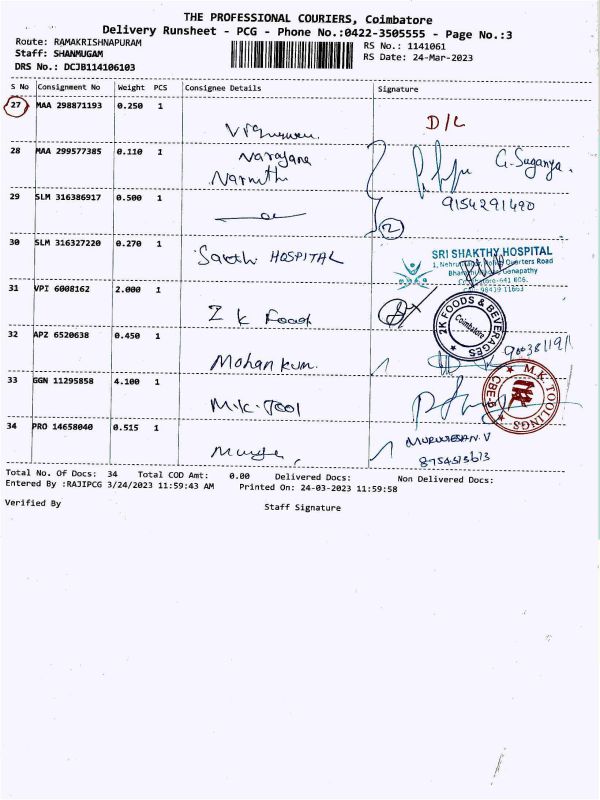 THE PROFESSIONAL COURIERS, Coimbatore
Delivery Runsheet - PCG - Phone No.:0422-3505555 - Page No.:3
Route: RAMAKRISHNAPURAM
RS No.: 1141061
Staff: SHANMUGAM
RS Date: 24-Mar-2023
DRS No.: DCJB114106103
S No Consignment No Weight PCS Consignee Details Signature
27 MAA 298871193 0.250 1
D/L
28 MAA 299577385 0.110 1 Narayana
G. Suganya.
29 SLM 316386917 0.500 1
9154291490
2
30 SLM 316327220 0.270 1 Sakthi HOSPITAL
SRI SHAKTHY HOSPITAL
31 VPI 6008162 2.000 1 Z K Food
2K FOODS & BEVERAGES
Coimbatore
32 APZ 6520638 0.450 1 Mohan kum.
33 GGN 11295858 4.100 1 M.K. Tool
M.K. TOOLINGS
CBE-6
34 PRO 14658040 0.515 1
MURUGESAN. V
Total No. Of Docs: 34 Total COD Amt: 0.00 Delivered Docs: Non Delivered Docs:
Entered By :RAJIPCG 3/24/2023 11:59:43 AM Printed On: 24-03-2023 11:59:58
Verified By Staff Signature